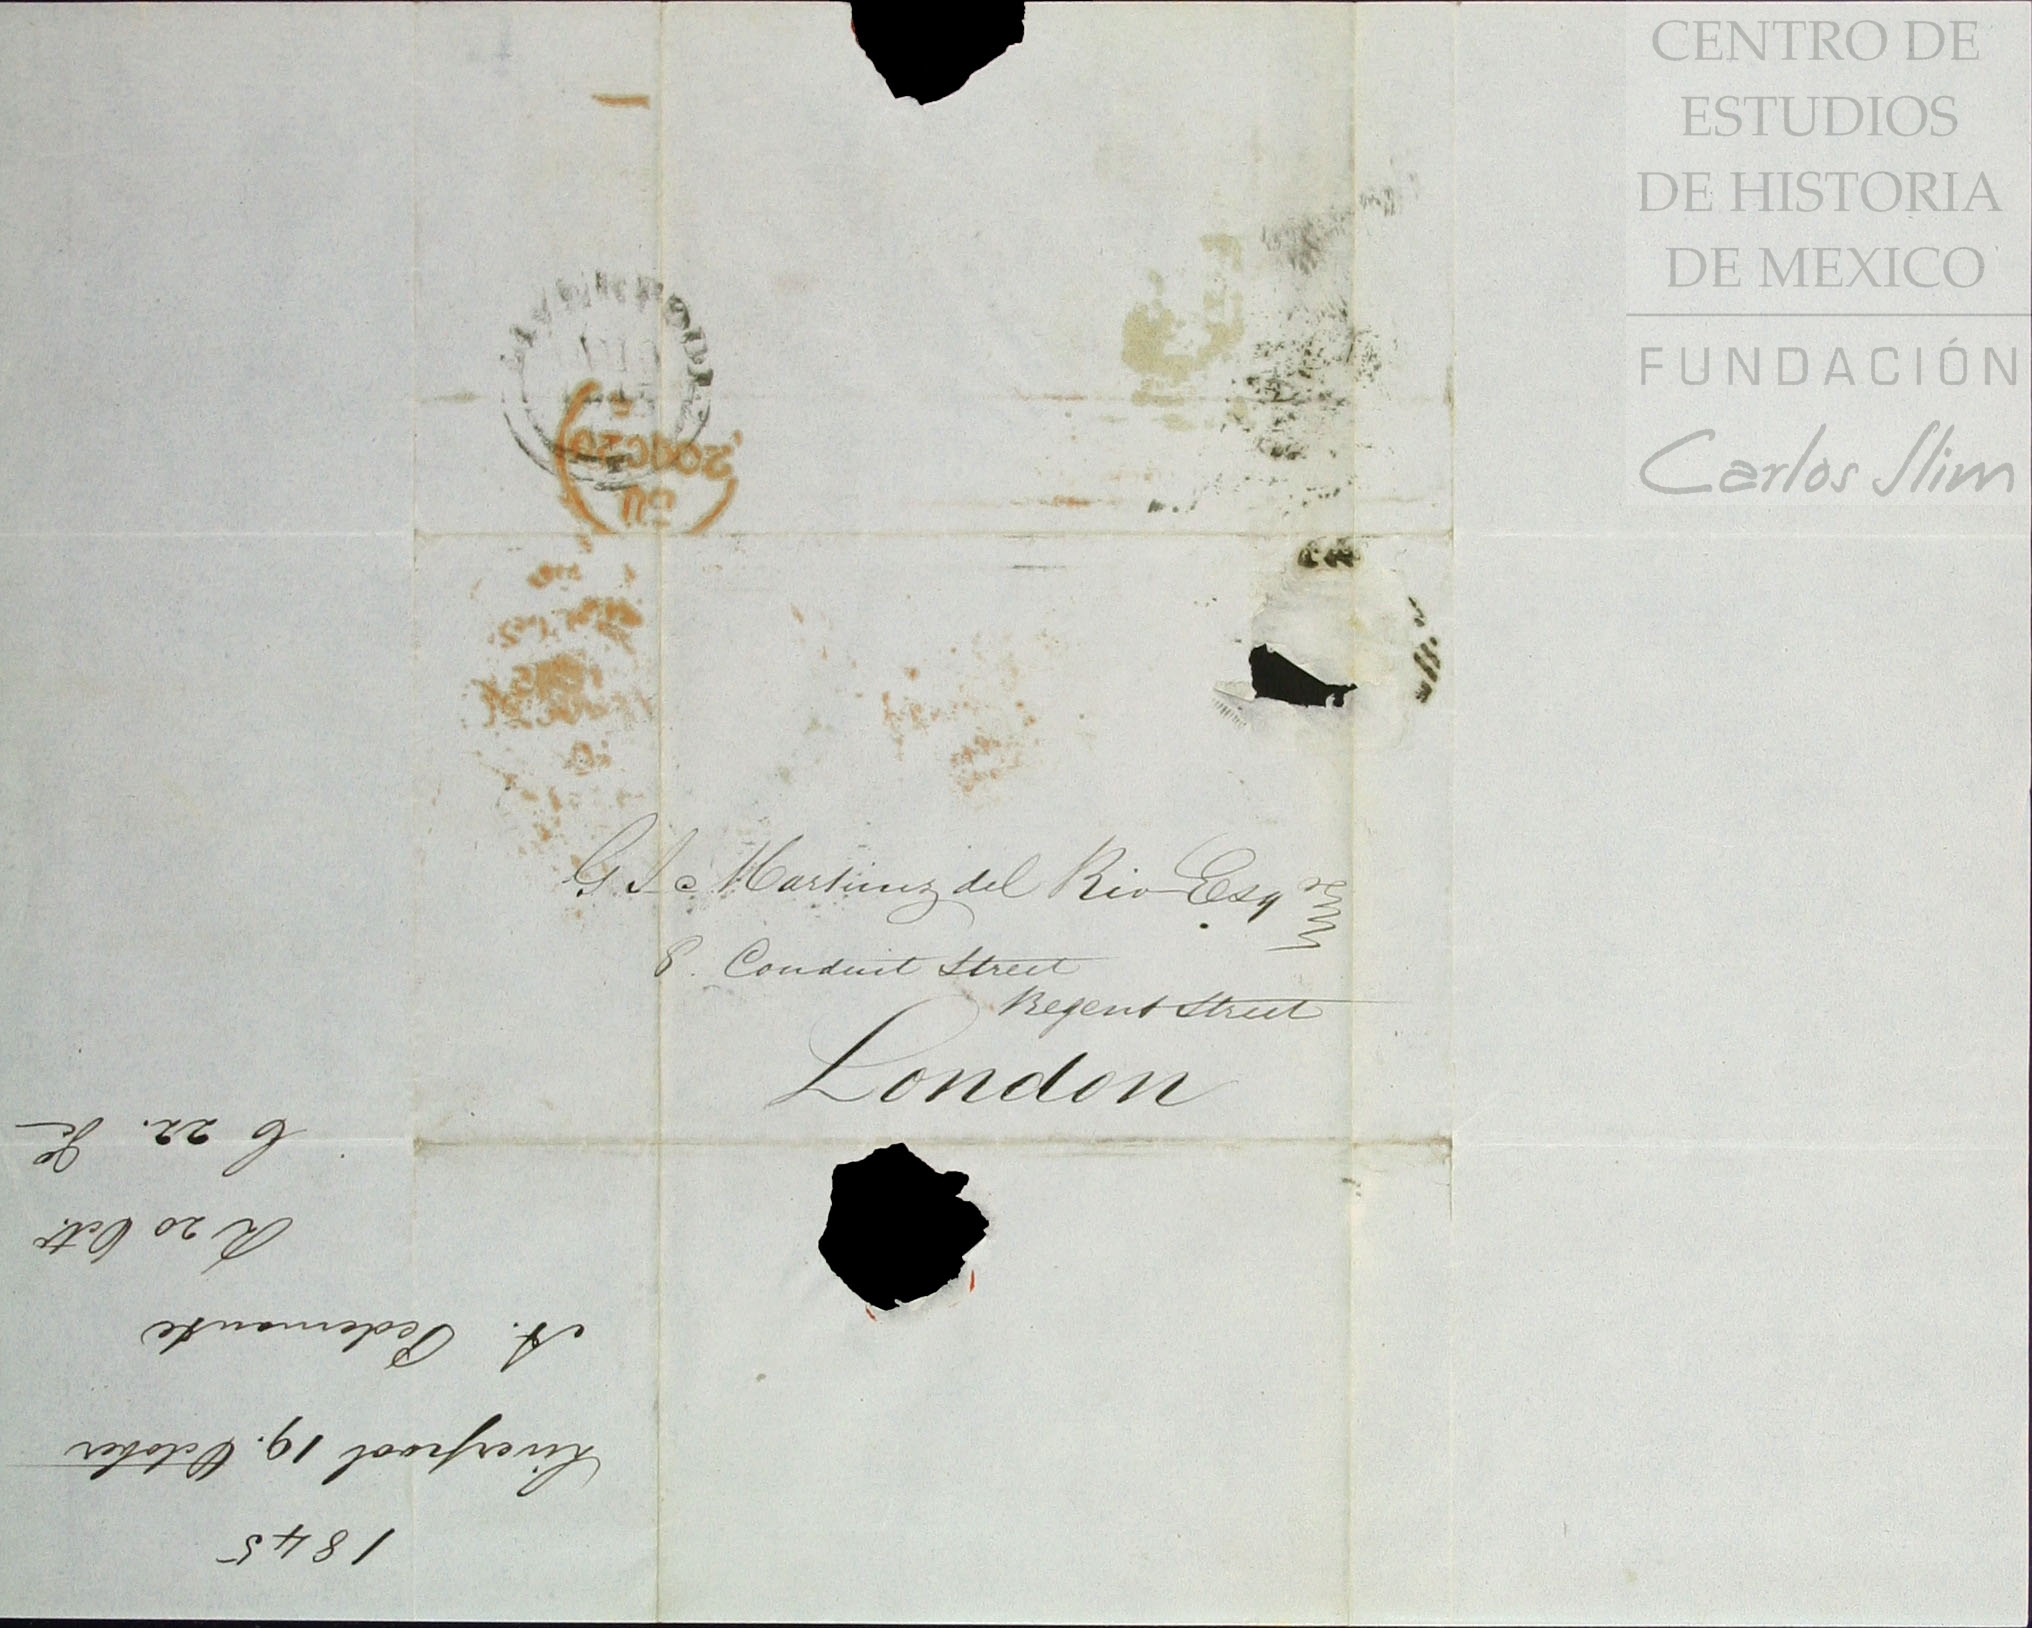 CENTRO DE
ESTUDIOS
DE HISTORIA
DE MEXICO
FUNDACIÓN
Carlos Slim
LIVERPOOL
20 OC 20
G. J. Martinez del Rio Esq
8. Conduit Street
Regent Street
London
1845
Liverpool 19. October
A. Pedemonte
R 20 Oct.
C 22.